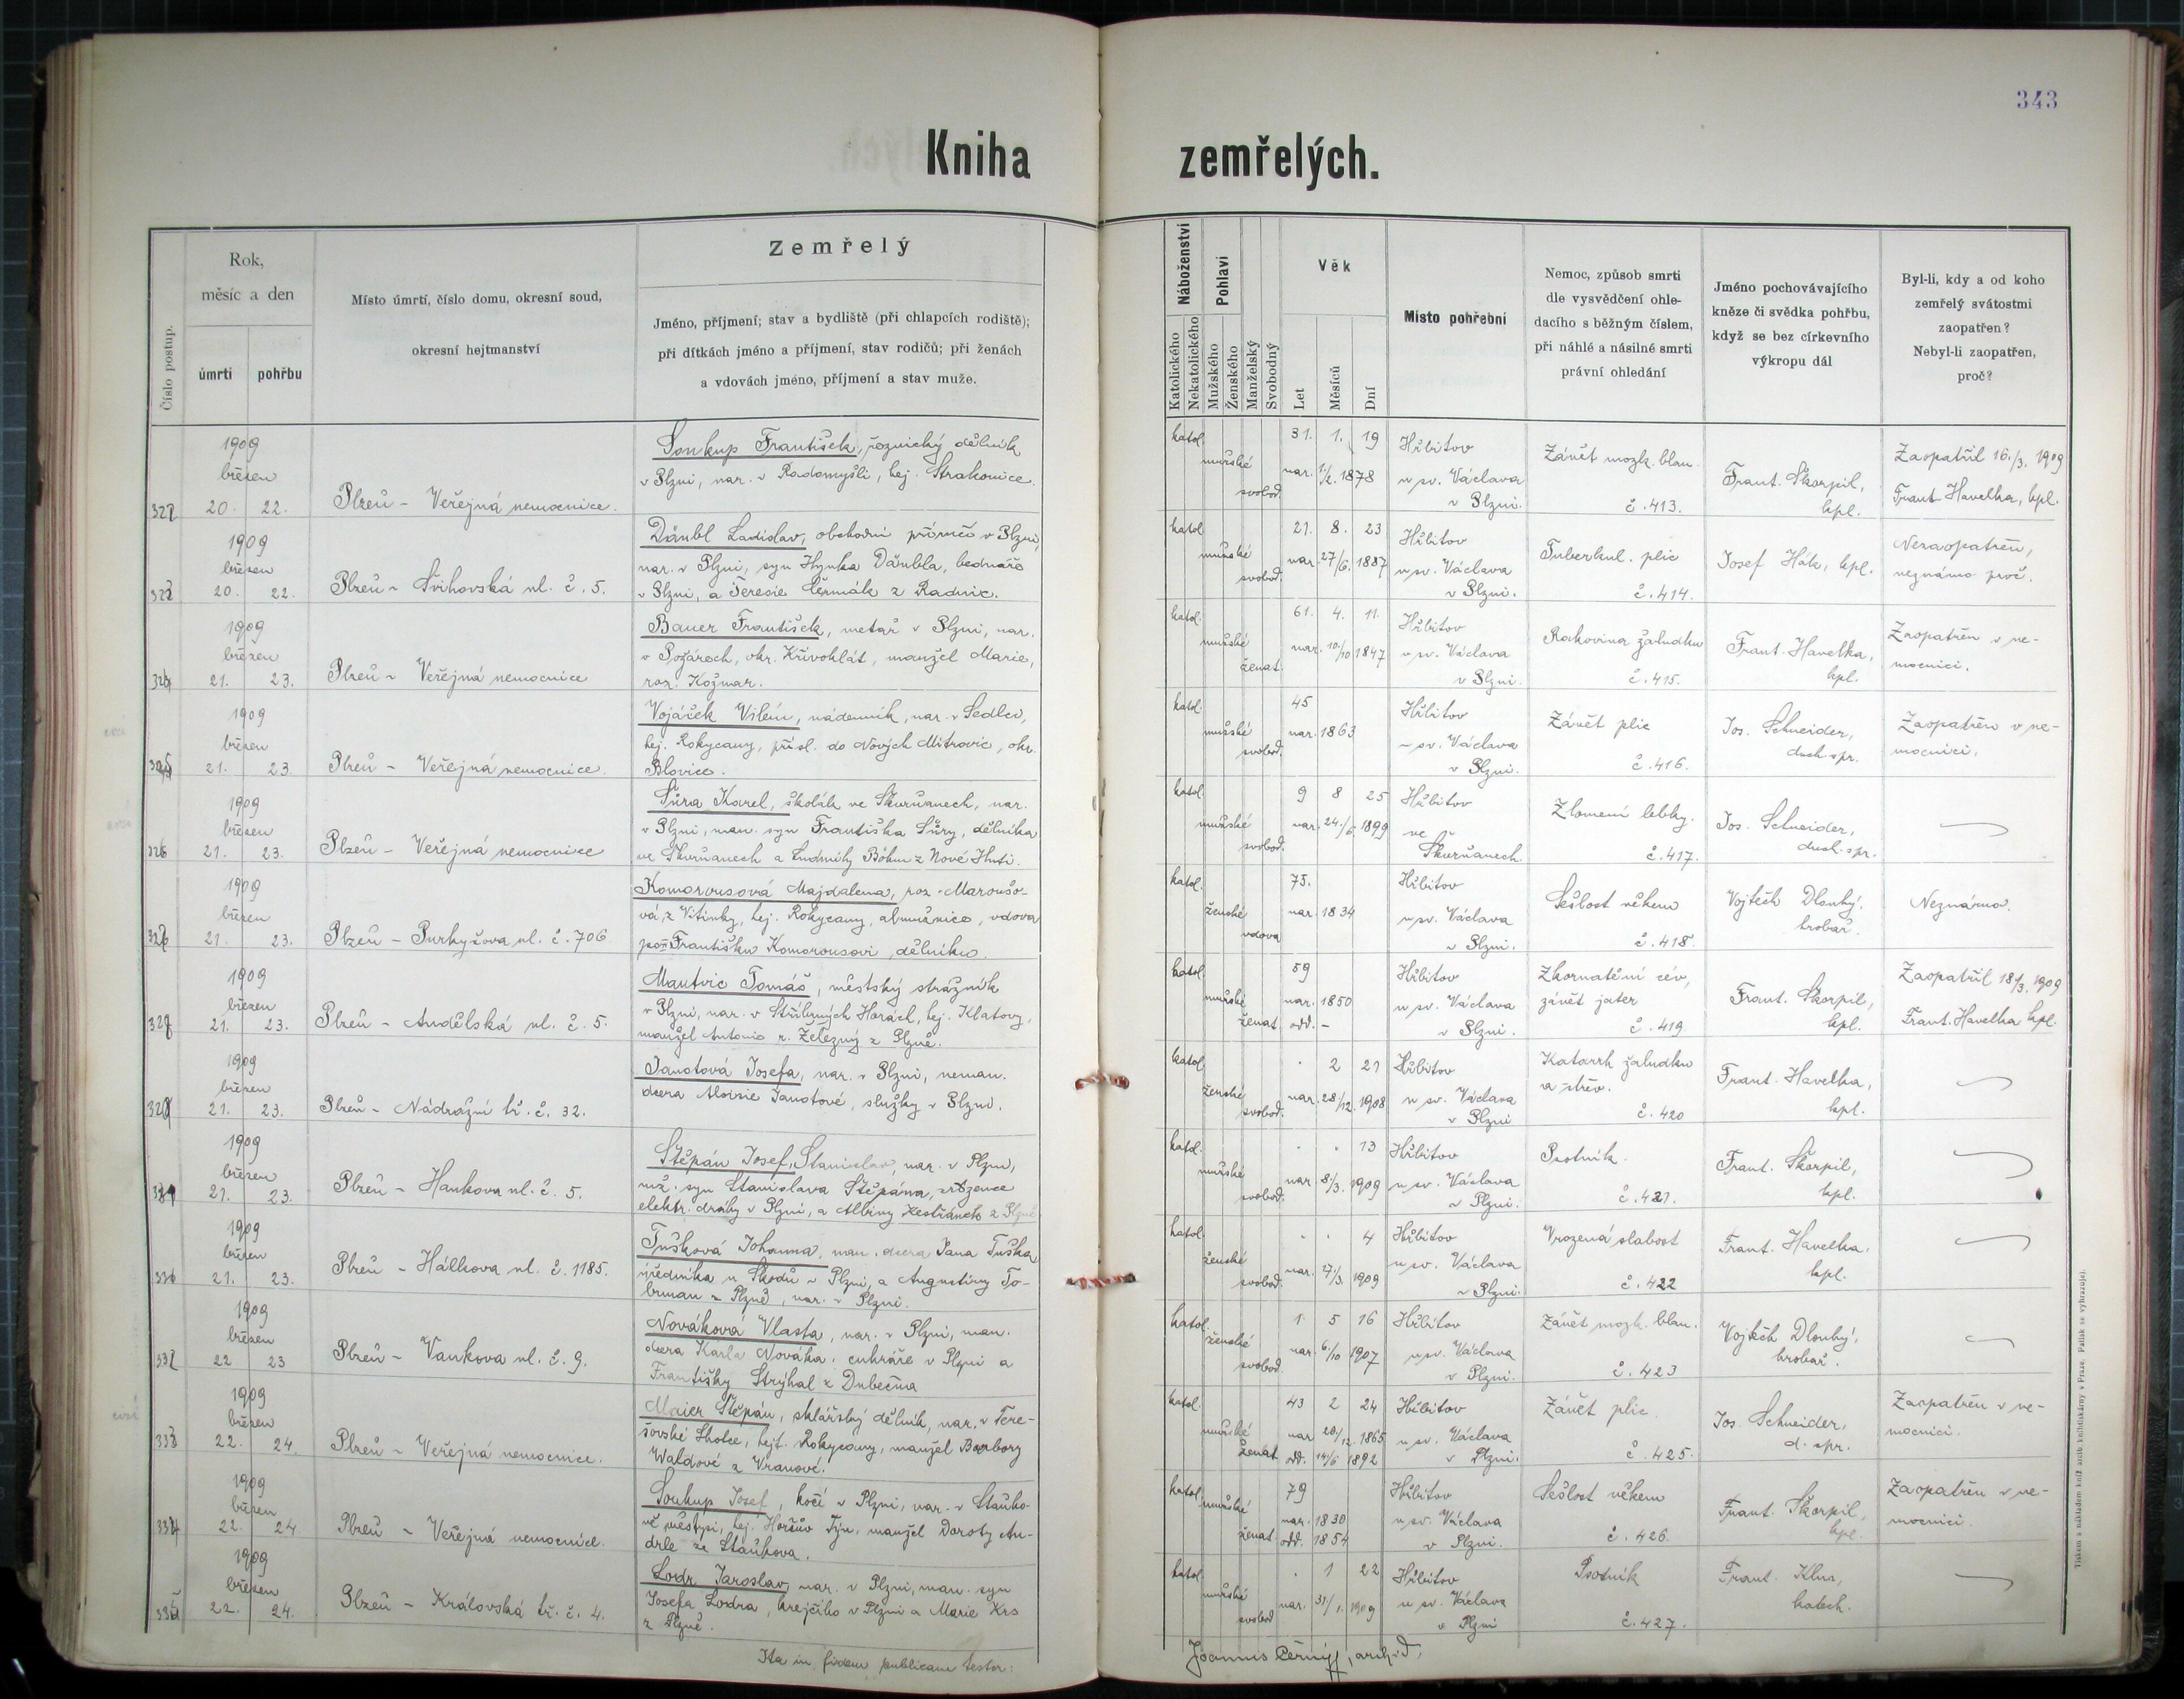 343
Kniha zemřelých.
Číslo postup.
Rok,
měsíc a den
úmrtí
pohřbu
Místo úmrtí, číslo domu, okresní soud,
okresní hejtmanství
Zemřelý
Jméno, příjmení; stav a bydliště (při chlapcích rodiště);
při dítkách jméno a příjmení, stav rodičů; při ženách
a vdovách jméno, příjmení a stav muže.
Náboženství
Katolického
Nekatolického
Pohlaví
Mužského
Ženského
Manželský
Svobodný
Věk
Let
Měsíců
Dní
Místo pohřební
Nemoc, způsob smrti
dle vysvědčení ohle-
dacího s běžným číslem,
při náhlé a násilné smrti
právní ohledání
Jméno pochovávajícího
kněze či svědka pohřbu,
když se bez církevního
výkropu dál
Byl-li, kdy a od koho
zemřelý svátostmi
zaopatřen?
Nebyl-li zaopatřen,
proč?
1909
březen
20. 22.
Plzeň - Veřejná nemocnice.
Soukup František, řeznický dělník
v Plzni, nar. v Radomyšli, hej. Strakonice.
katol. mužské svobod.
31. 1. 19
nar. 1/2. 1878
Hřbitov
u sv. Václava
v Plzni.
Zánět mozk. blan.
č. 413.
Frant. Škorpil,
kpl.
Zaopatřil 16./3. 1909
Frant. Havelka, kpl.
1909
březen
20. 22.
Plzeň - Švihovská ul. č. 5.
Däubl Ladislav, obchodní příručí v Plzni,
nar. v Plzni, syn Hynka Däubla, bednáře
v Plzni, a Teresie Čermák z Radnic.
katol. mužské svobod.
21. 8. 23
nar. 27/6. 1887
Hřbitov
u sv. Václava
v Plzni.
Tuberkul. plic
č. 414.
Josef Hák, kpl.
Nezaopatřen,
neznámo proč.
1909
březen
21. 23.
Plzeň - Veřejná nemocnice
Bauer František, metař v Plzni, nar.
v Požárech, okr. Křivoklát, manžel Marie,
roz. Kožmar.
katol. mužské ženat.
61. 4. 11.
nar. 10/10 1847
Hřbitov
u sv. Václava
v Plzni.
Rakovina žaludku
č. 415.
Frant. Havelka,
kpl.
Zaopatřen v ne-
mocnici.
1909
březen
21. 23.
Plzeň - Veřejná nemocnice.
Vojáček Vilém, nádenník, nar. v Sedlci,
hej. Rokycany, přísl. do Nových Mitrovic, okr.
Blovice.
katol. mužské svobod.
45
nar. 1863
Hřbitov
u sv. Václava
v Plzni.
Zánět plic
č. 416.
Jos. Schneider,
duch. spr.
Zaopatřen v ne-
mocnici.
1909
březen
21. 23.
Plzeň - Veřejná nemocnice
Šůra Karel, školák ve Skvrňanech, nar.
v Plzni, man. syn Františka Šůry, dělníka
ve Skvrňanech a Ludmily Böhm z Nové Huti.
katol. mužské svobod.
9 8 25
nar. 24./6. 1899
Hřbitov
ve
Skvrňanech
Zlomení lebky.
č. 417.
Jos. Schneider,
duch. spr.
1909
březen
21. 23.
Plzeň - Purkyňova ul. č. 706
Komorousová Majdalena, roz. Maroušo-
vá, z Vitinky, hej. Rokycany, almužnice, vdova
po Františku Komorousovi, dělníku.
katol. ženské vdova
75.
nar. 1834
Hřbitov
u sv. Václava
v Plzni.
Sešlost věkem
č. 418.
Vojtěch Dlouhý,
hrobař.
Neznámo.
1909
březen
21. 23.
Plzeň - Andělská ul. č. 5.
Mautvic Tomáš, městský strážník
v Plzni, nar. v Stříbrných Horách, hej. Klatovy,
manžel Antonie r. Železný z Plzně.
katol. mužské ženat
59
nar. 1850
odd. -
Hřbitov
u sv. Václava
v Plzni.
Zkornatění cév,
zánět jater
č. 419
Frant. Škorpil,
kpl.
Zaopatřil 18/3. 1909
Frant. Havelka kpl.
1909
březen
21. 23.
Plzeň - Nádražní tř. č. 32.
Janotová Josefa, nar. v Plzni, neman.
dcera Aloisie Janotové, služky v Plzni.
katol. ženské svobod.
. 2 21
nar. 28/12. 1908
Hřbitov
u sv. Václava
v Plzni
Katarrh žaludku
a střev.
č. 420
Frant. Havelka,
kpl.
1909
březen
21. 23.
Plzeň - Hankova ul. č. 5.
Štěpán Josef, Stanislav, nar. v Plzni,
mž. syn Stanislava Štěpána, zřízence
elektr. dráhy v Plzni, a Albiny z Plzně
katol. mužské svobod.
. . 13
nar. 8/3. 1909
Hřbitov
u sv. Václava
v Plzni.
Psotník.
č. 421.
Frant. Škorpil,
kpl.
1909
březen
21. 23.
Plzeň - Hálkova ul. č. 1185.
Tušková Johanna, man. dcera Jana Tuška,
úředníka u Škodů v Plzni, a Augustiny To-
brman z Plzně, nar. v Plzni.
katol. ženské svobod.
. . 4
nar. 17/3. 1909
Hřbitov
u sv. Václava
v Plzni.
Vrozená slabost
č. 422
Frant. Havelka,
kpl.
1909
březen
22 23
Plzeň - Vaňkova ul. č. 9.
Nováková Vlasta, nar. v Plzni, man.
dcera Karla Nováka, cukráře v Plzni a
Františky Strýhal z Dubečna
katol. ženské svobod.
1. 5 16
nar. 6/10 1907
Hřbitov
u sv. Václava
v Plzni.
Zánět mozk. blan.
č. 423
Vojtěch Dlouhý,
hrobař.
1909
březen
22. 24.
Plzeň - Veřejná nemocnice.
Maier Štěpán, sklářský dělník, nar. v Tere-
šovské Lhotce, hejt. Rokycany, manžel Barbory
Waldové z Vranové.
katol. mužské ženat
43 2 24
nar. 20/12. 1865
odd. 14/6 1892
Hřbitov
u sv. Václava
v Plzni.
Zánět plic.
č. 425.
Jos. Schneider,
d. spr.
Zaopatřen v ne-
mocnici.
1909
březen
22. 24
Plzeň - Veřejná nemocnice.
Soukup Josef, kočí v Plzni, nar. v Staňko-
vě městysi, hej. Horšův Týn, manžel Doroty An-
drle ze Staňkova.
katol. mužské ženat.
79
nar. 1830
odd. 1854
Hřbitov
u sv. Václava
v Plzni.
Sešlost věkem
č. 426.
Frant. Škorpil,
kpl.
Zaopatřen v ne-
mocnici.
1909
březen
22. 24.
Plzeň - Královská tř. č. 4.
Lodr Jaroslav, nar. v Plzni, man. syn
Josefa Lodra, krejčího v Plzni a Marie Krs
z Plzně.
katol. mužské svobod
. 1 22
nar. 31/1. 1909
Hřbitov
u sv. Václava
v Plzni
Psotník
č. 427.
Frant. Klus,
katech.
Ita in fidem publicam testor:
Joannes Černý, archid.